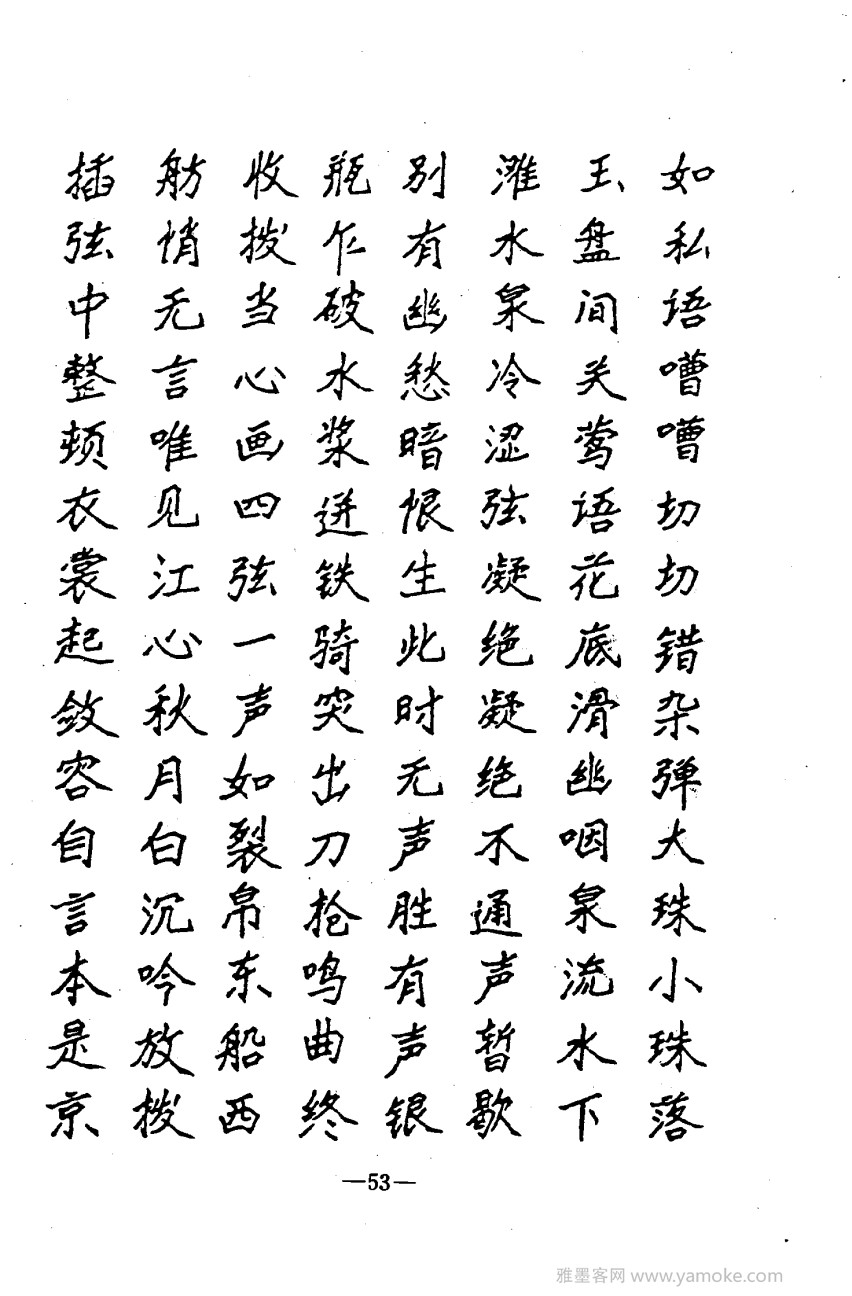 如私语嘈嘈切切错杂弹大珠小珠落
玉盘间关莺语花底滑幽咽泉流水下
滩水泉冷涩弦凝绝凝绝不通声暂歇
别有幽愁暗恨生此时无声胜有声银
瓶乍破水浆迸铁骑突出刀枪鸣曲终
收拨当心画四弦一声如裂帛东船西
舫悄无言唯见江心秋月白沉吟放拨
插弦中整顿衣裳起敛容自言本是京
—53—
雅墨客网 www.yamoke.com